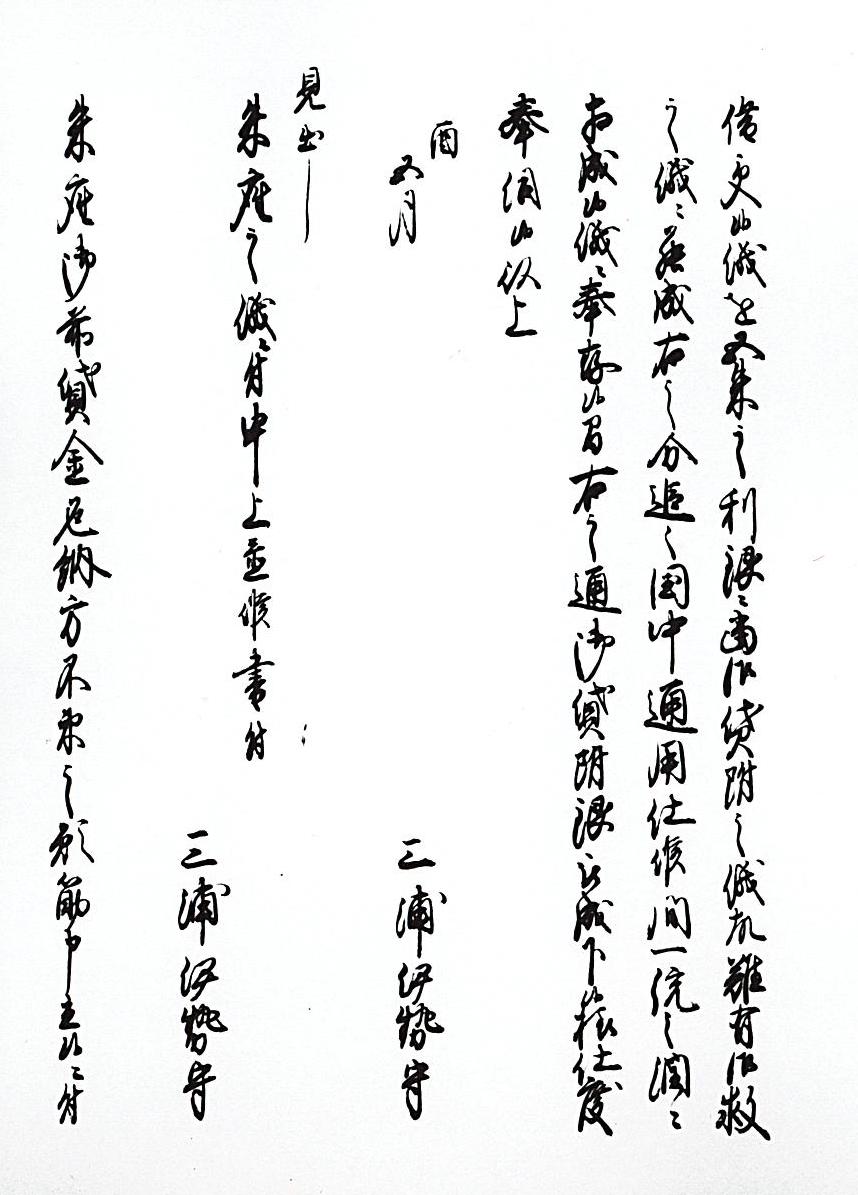 借受候儀を五朱之利銀ニ而御貸附之儀故難有御救
之儀ニ罷成右之分追々国中通用仕候間一統之潤ニ
相成候儀ニ奉存候間右之通御貸附銀被成下候様仕度
奉伺候以上
酉
五月
三浦伊勢守
見出し
朱座之儀ニ付申上並候書付
三浦伊勢守
朱座御前貸金返納方不束之願筋申立候ニ付